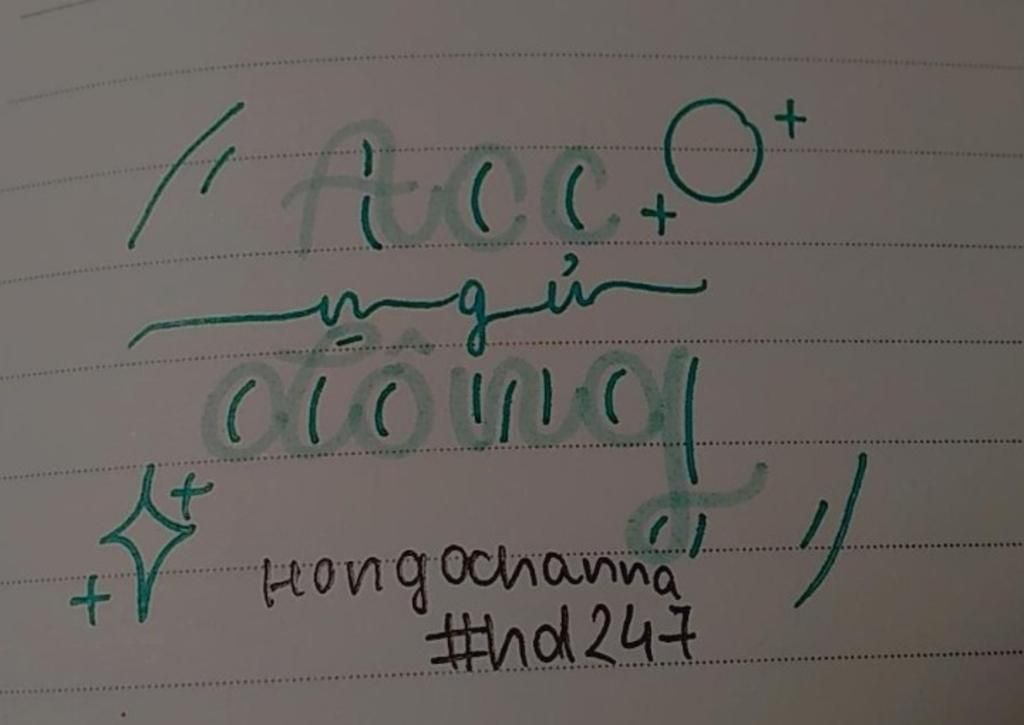 Acc
ngủ
đông
Hongochanna
#hd247